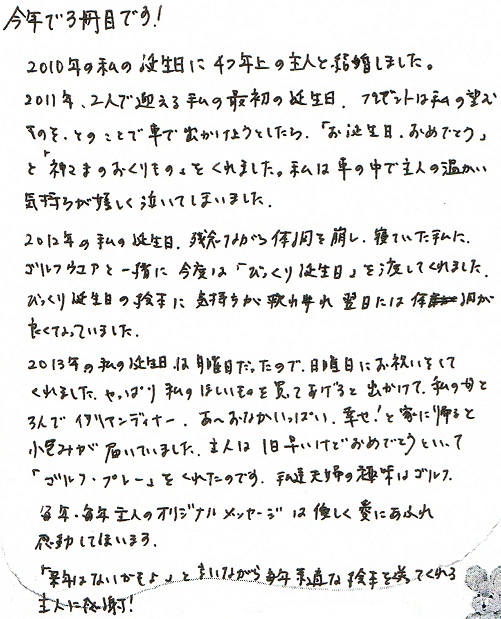 今年で3冊目です!
2010年の私の誕生日に4つ年上の主人と結婚しました。
2011年、2人で迎える私の最初の誕生日、プレゼントは私の望む
ものを、とのことで車で出かけようとしたら、「お誕生日、おめでとう」
と「神さまのおくりもの」をくれました。私は車の中で主人の温かい
気持ちが嬉しく泣いてしまいました。
2012年の私の誕生日、残念ながら体調を崩し、寝ていた私に、
ゴルフウェアと一緒に今度は「びっくり誕生日」を渡してくれました。
びっくり誕生日の絵本に気持ちが 翌日には体調が
良くなっていました。
2013年の私の誕生日は月曜日だったので、日曜日にお祝いをして
くれました。やっぱり私のほしいものを買ってあげると出かけて、私の母と
3人でイタリアンディナー。あ〜おなかいっぱい、幸せ!と家に帰ると
小包みが届いていました。主人は1日早いけどおめでとうといって
「ゴルフ・プレー」をくれたのです。私達夫婦の趣味はゴルフ。
毎年・毎年主人のオリジナルメッセージは優しく愛にあふれ
感動してしまいます。
「来年はないかもよ」と言いながら毎年素適な絵本を送ってくれる
主人に感謝!